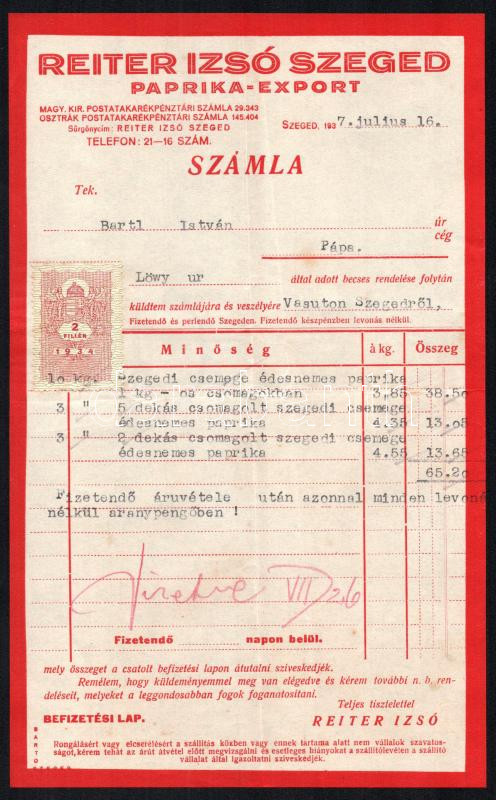 REITER IZSÓ SZEGED
PAPRIKA-EXPORT
MAGY. KIR. POSTATAKARÉKPÉNZTÁRI SZÁMLA 29.343
OSZTRÁK POSTATAKARÉKPÉNZTÁRI SZÁMLA 145.404
Sürgönycim: REITER IZSÓ SZEGED
TELEFON: 21—16 SZÁM.
SZEGED, 1937. julius 16.
SZÁMLA
Tek.
Bartl István úr
cég
Pápa.
Löwy ur által adott becses rendelése folytán
küldtem számlájára és veszélyére Vasuton Szegedről,
Fizetendő és perlendő Szegeden. Fizetendő készpénzben levonás nélkül.
2
FILLÉR
1934
Minőség à kg. Összeg
10 kg. Szegedi csemege édesnemes paprika
1 kg - os csomagokban 3,85 38.50
3 " 5 dekás csomagolt szegedi csemege
édesnemes paprika 4.35 13.05
3 " 2 dekás csomagolt szegedi csemege
édesnemes paprika 4.55 13.65
65.20
Fizetendő áruvétele után azonnal minden levoná
nélkül aranypengőben !
Fizetve VII 26
Fizetendő napon belül.
mely összeget a csatolt befizetési lapon átutalni sziveskedjék.
Remélem, hogy küldeményemmel meg van elégedve és kérem további n. b. ren-
deléseit, melyeket a leggondosabban fogok foganatositani.
Teljes tisztelettel
BEFIZETÉSI LAP. REITER IZSÓ
Rongálásért vagy elcserélésért a szállitás közben vagy ennek tartama alatt nem vállalok szavatos-
ságot, kérem tehát az árút átvétel előtt megvizsgálni és esetleges hiányokat a szállitólevélen a szállitó
vállalat által igazoltatni sziveskedjék.